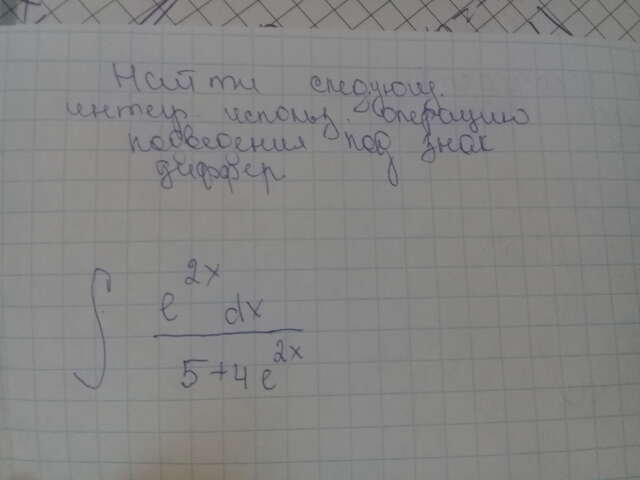 Найти следующ.
интегр. использ. операцию
подведения под знак
диффер
∫ e^{2x} dx / 5+4e^{2x}